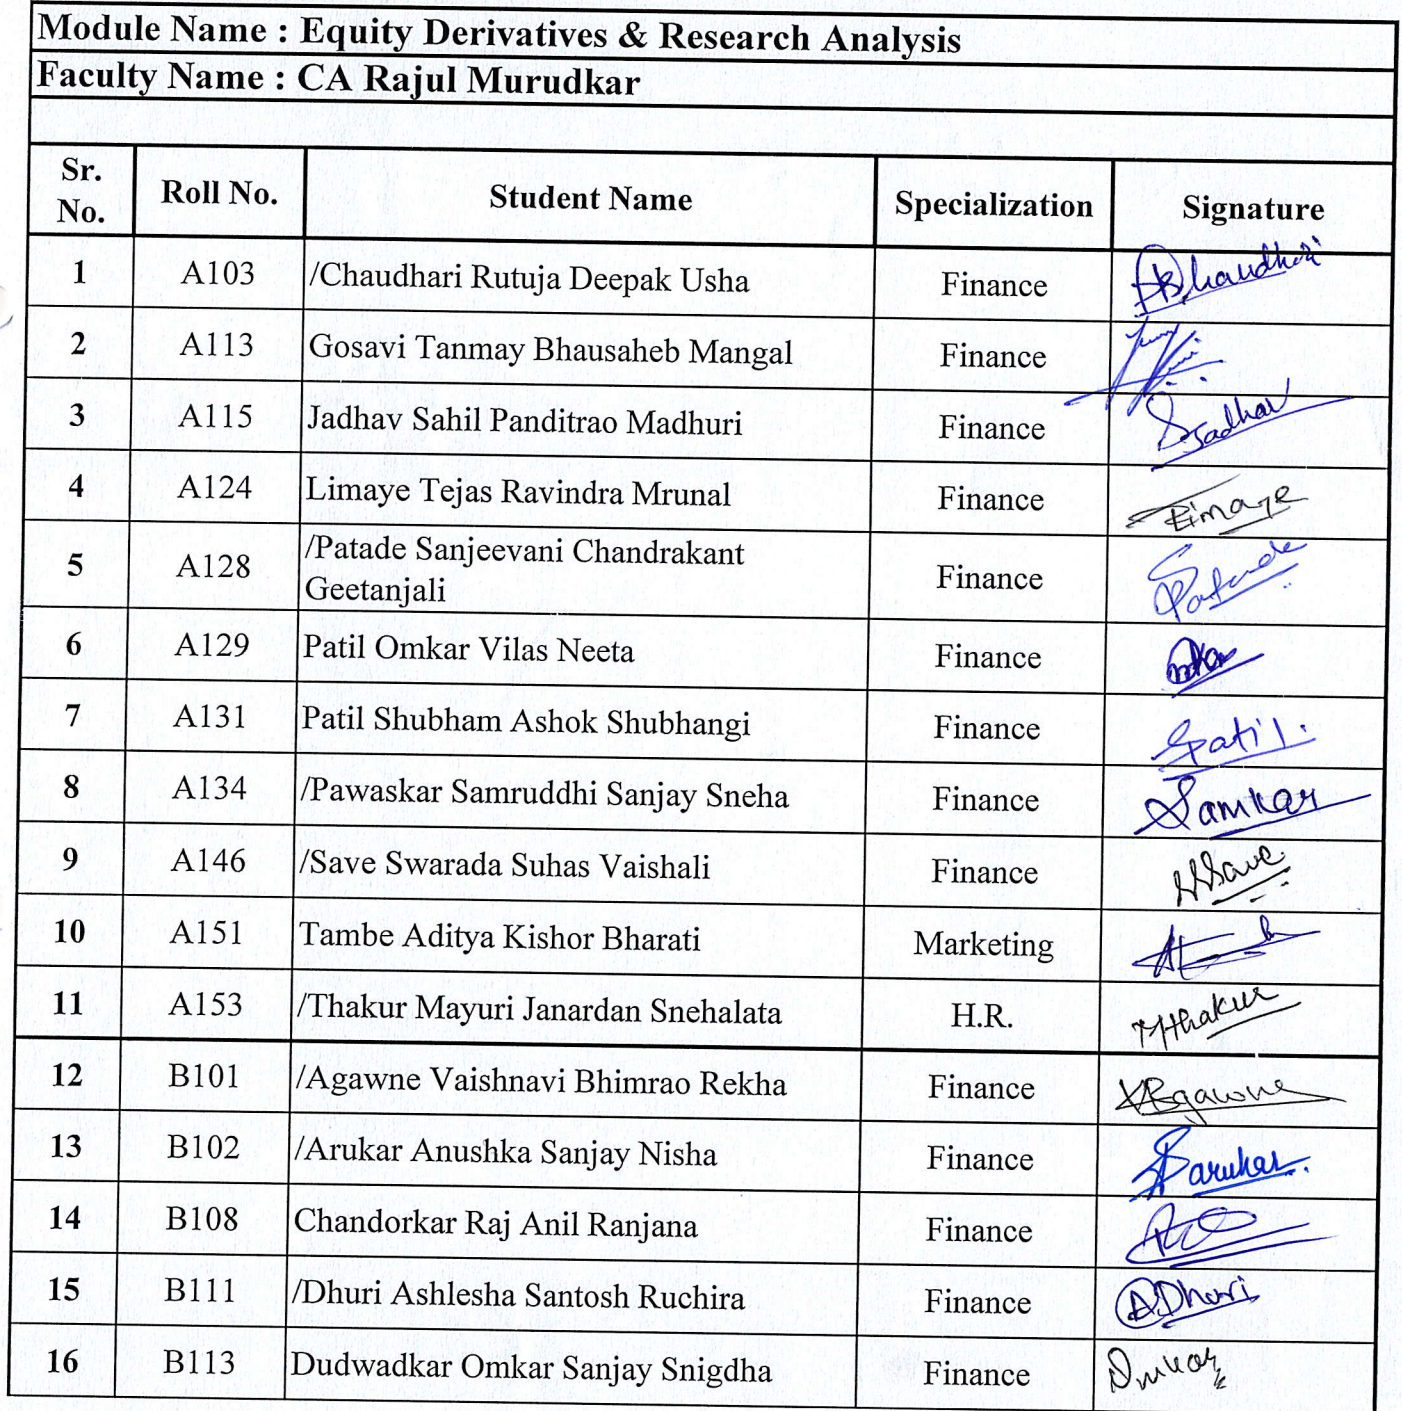 Module Name : Equity Derivatives & Research Analysis
Faculty Name : CA Rajul Murudkar
Sr. No. Roll No. Student Name Specialization Signature
1 A103 /Chaudhari Rutuja Deepak Usha Finance
2 A113 Gosavi Tanmay Bhausaheb Mangal Finance
3 A115 Jadhav Sahil Panditrao Madhuri Finance SJadhav
4 A124 Limaye Tejas Ravindra Mrunal Finance
5 A128 /Patade Sanjeevani Chandrakant
Geetanjali Finance
6 A129 Patil Omkar Vilas Neeta Finance
7 A131 Patil Shubham Ashok Shubhangi Finance
8 A134 /Pawaskar Samruddhi Sanjay Sneha Finance Samkar
9 A146 /Save Swarada Suhas Vaishali Finance
10 A151 Tambe Aditya Kishor Bharati Marketing
11 A153 /Thakur Mayuri Janardan Snehalata H.R. MThakur
12 B101 /Agawne Vaishnavi Bhimrao Rekha Finance
13 B102 /Arukar Anushka Sanjay Nisha Finance
14 B108 Chandorkar Raj Anil Ranjana Finance
15 B111 /Dhuri Ashlesha Santosh Ruchira Finance ADhuri
16 B113 Dudwadkar Omkar Sanjay Snigdha Finance Omkar